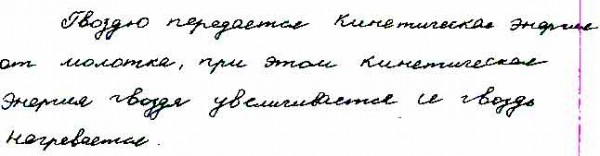 Гвоздю передается кинетическая энергия
от молотка, при этом кинетическая
энергия гвоздя увеличивается и гвоздь
нагревается.